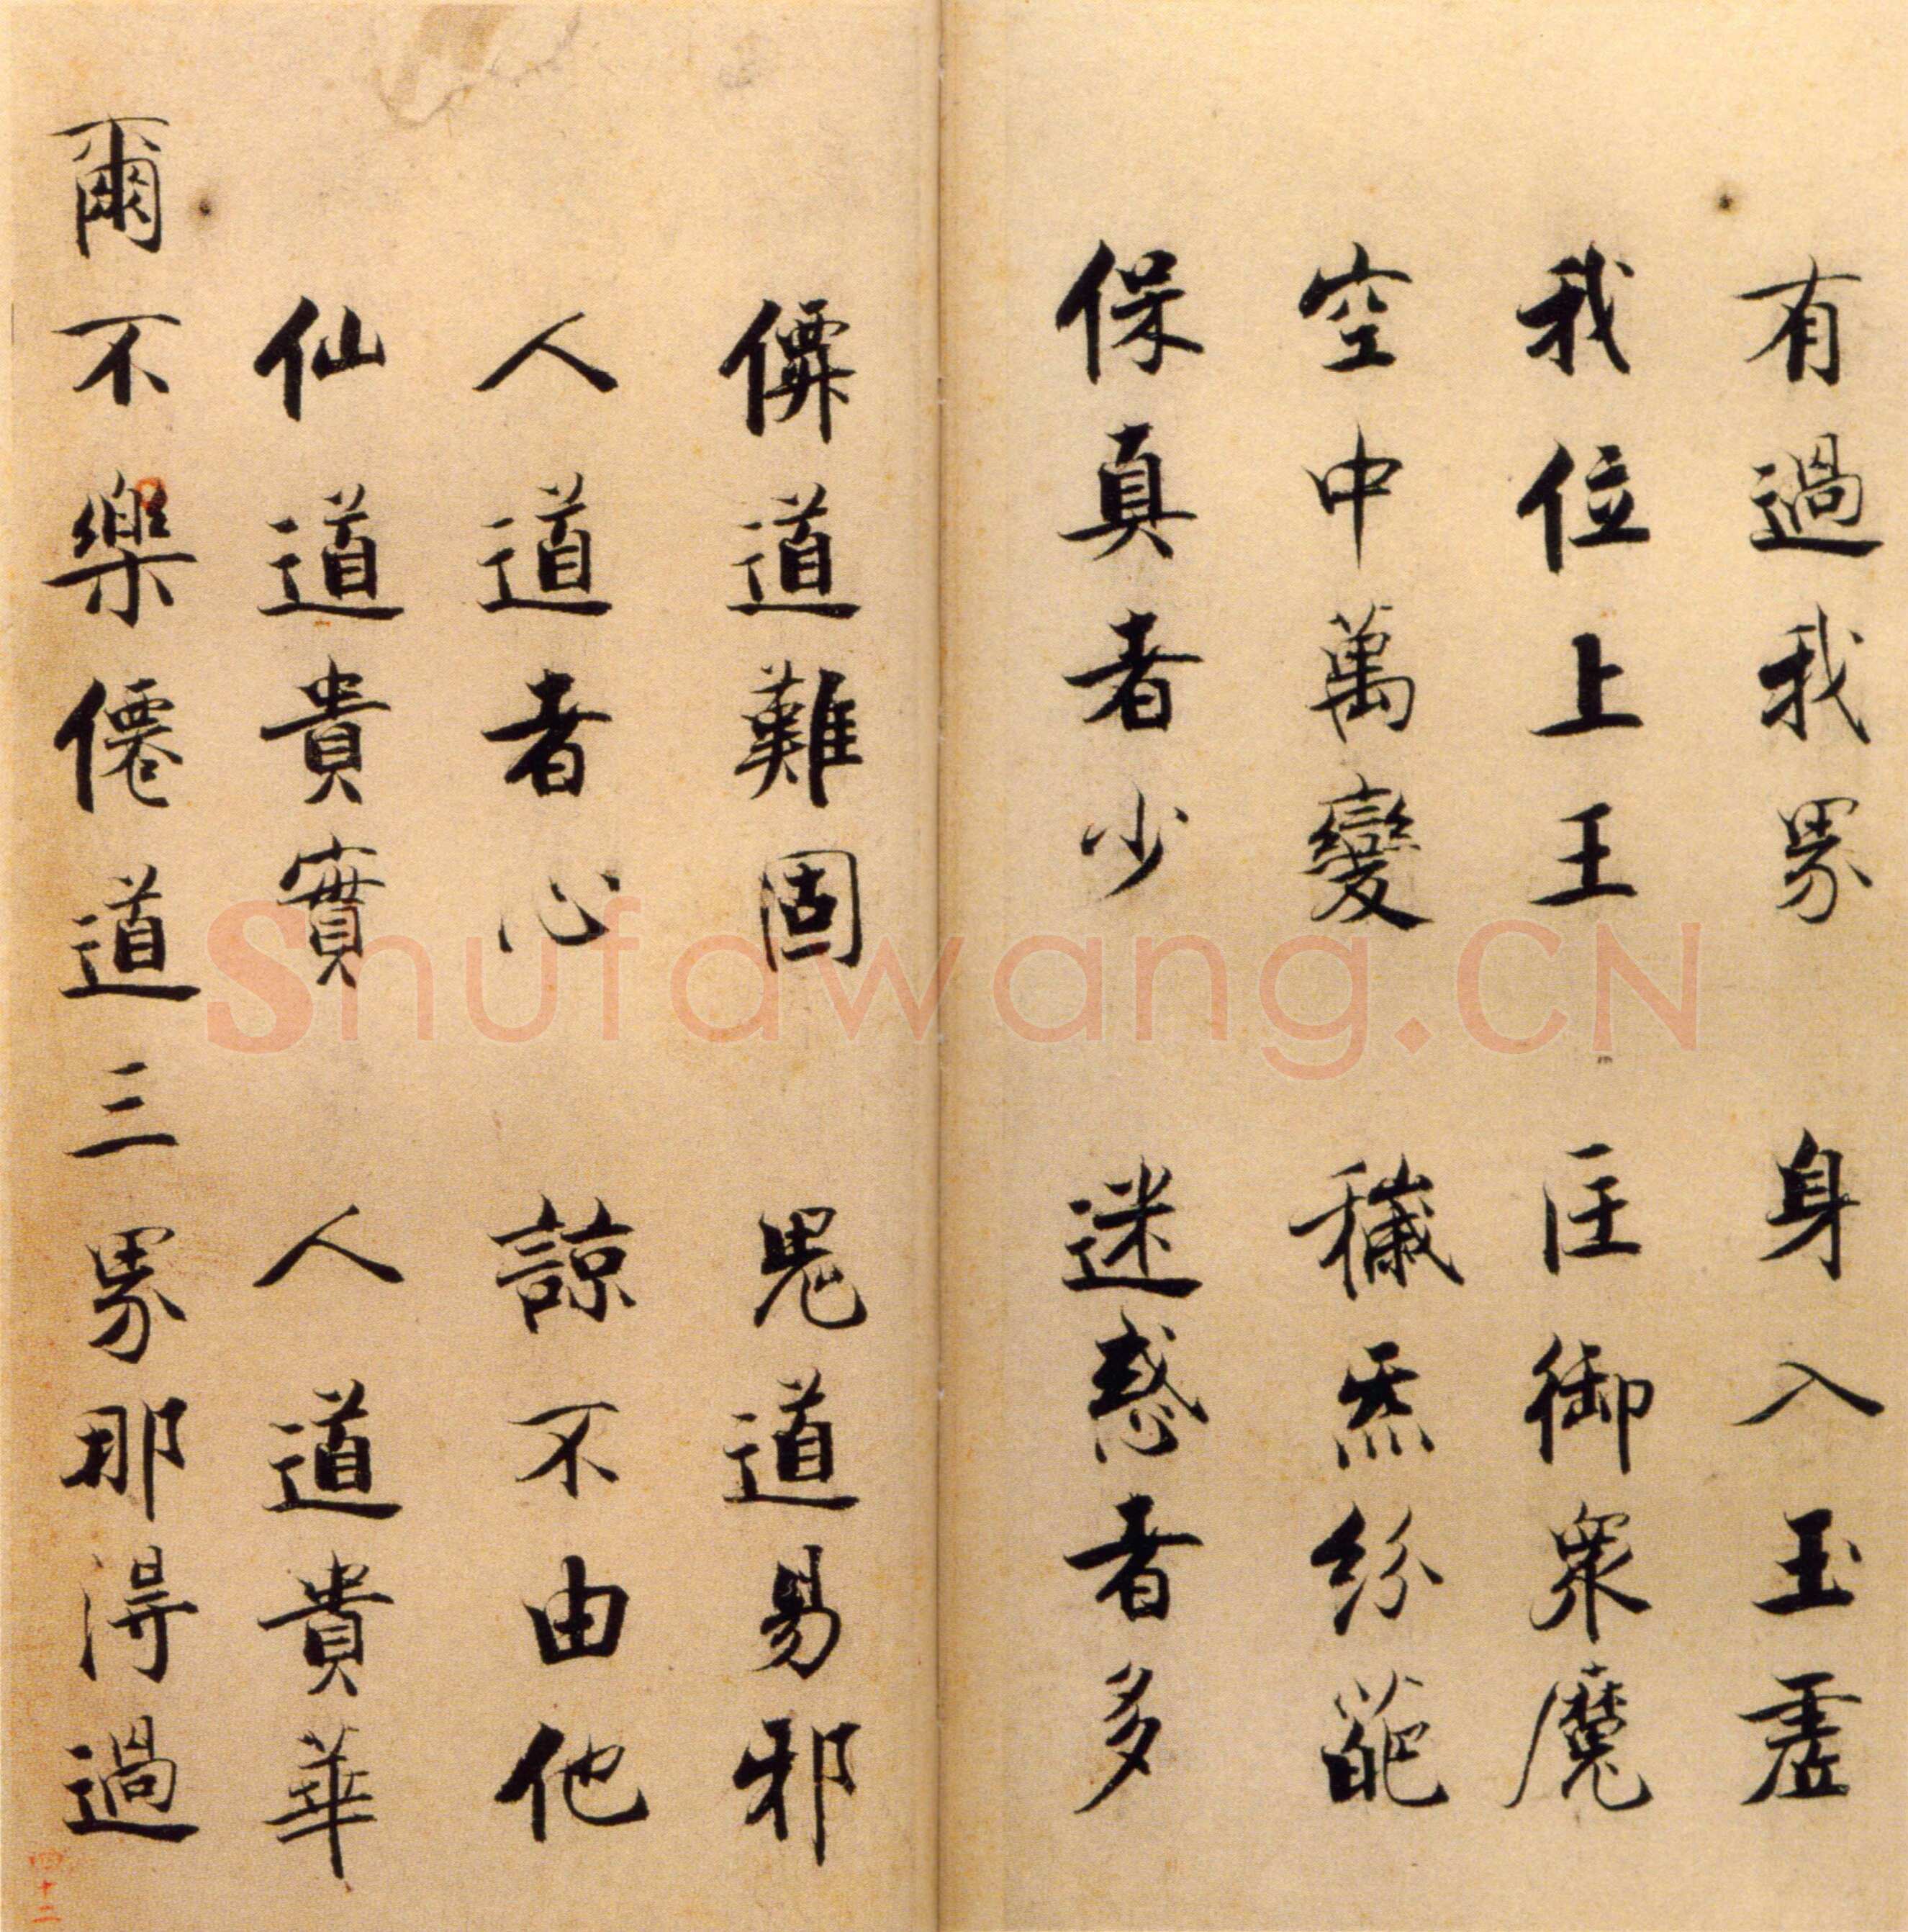 有過我界 身入玉虛
我位上王 匡御眾魔
空中萬變 穢炁紛葩
保真者少 迷惑者多
僊道難固 鬼道易邪
人道者心 諒不由他
仙道貴實 人道貴華
爾不樂僊道三界那得過
四十二
Shufawang.CN